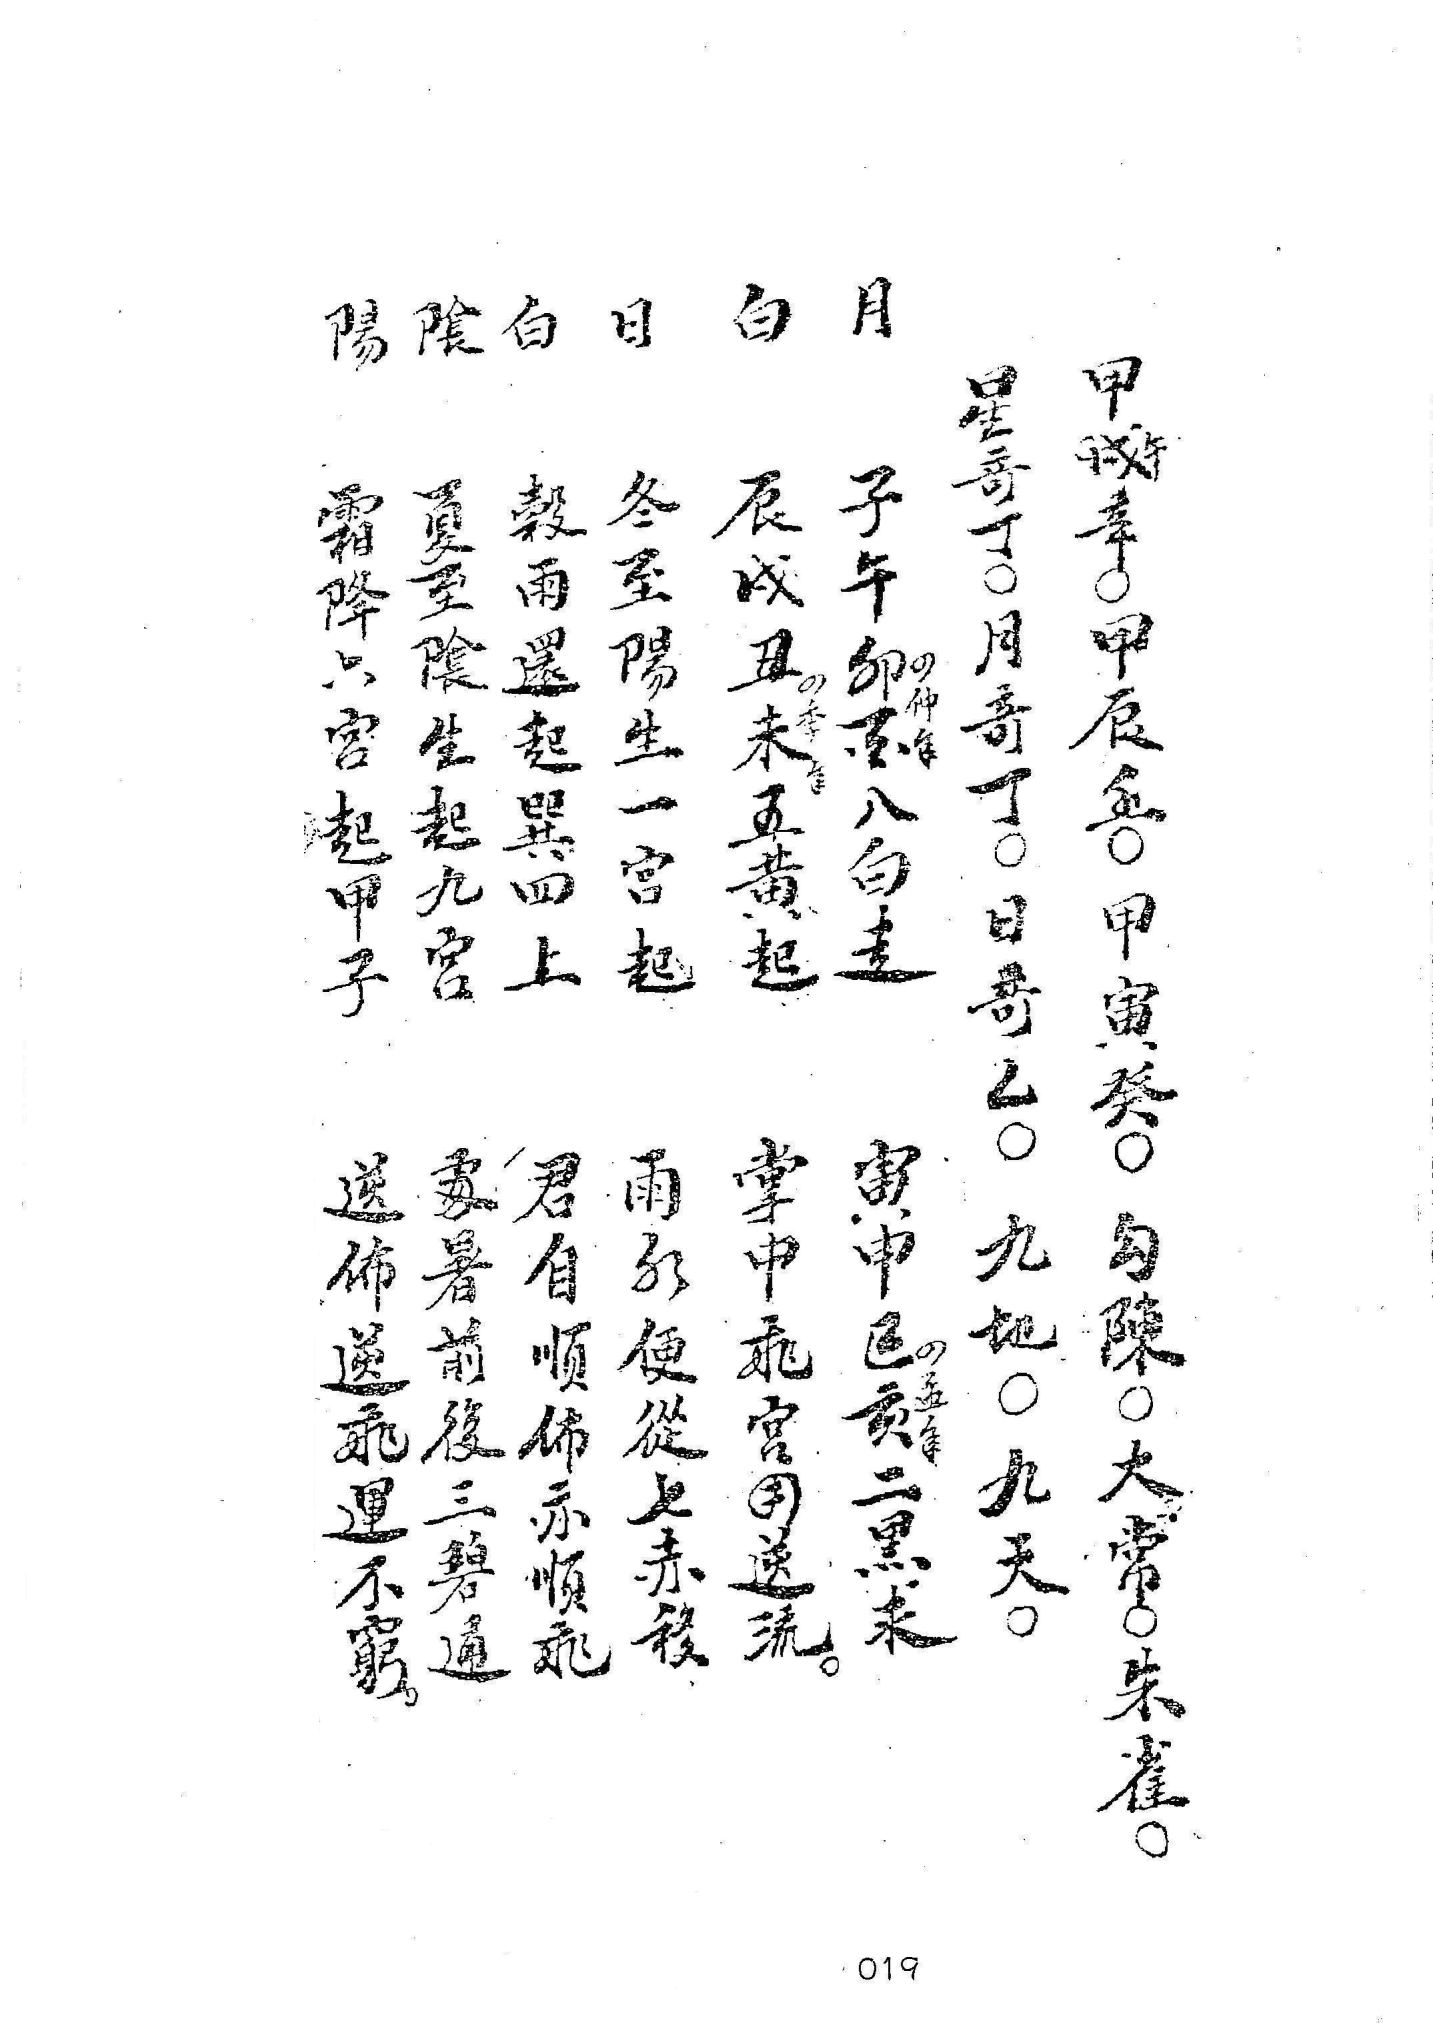 甲午辛〇甲辰壬〇甲寅癸〇勾陳〇大常〇朱雀〇
星奇丁〇月奇丁〇日奇乙〇九地〇九天〇
月 子午卯酉八白走 寅申巳亥二黑求
の仲年 の孟年
白 辰戌丑未五黃起 掌中飛宮用逆流。
の季年
日 冬至陽生一宮起 雨水便從七赤移
白 穀雨還起巽四上 君自順佈亦順飛
陰 夏至陰生起九宮 處暑前後三碧通
陽 霜降六宮起甲子 逆佈逆飛運不窮。
019